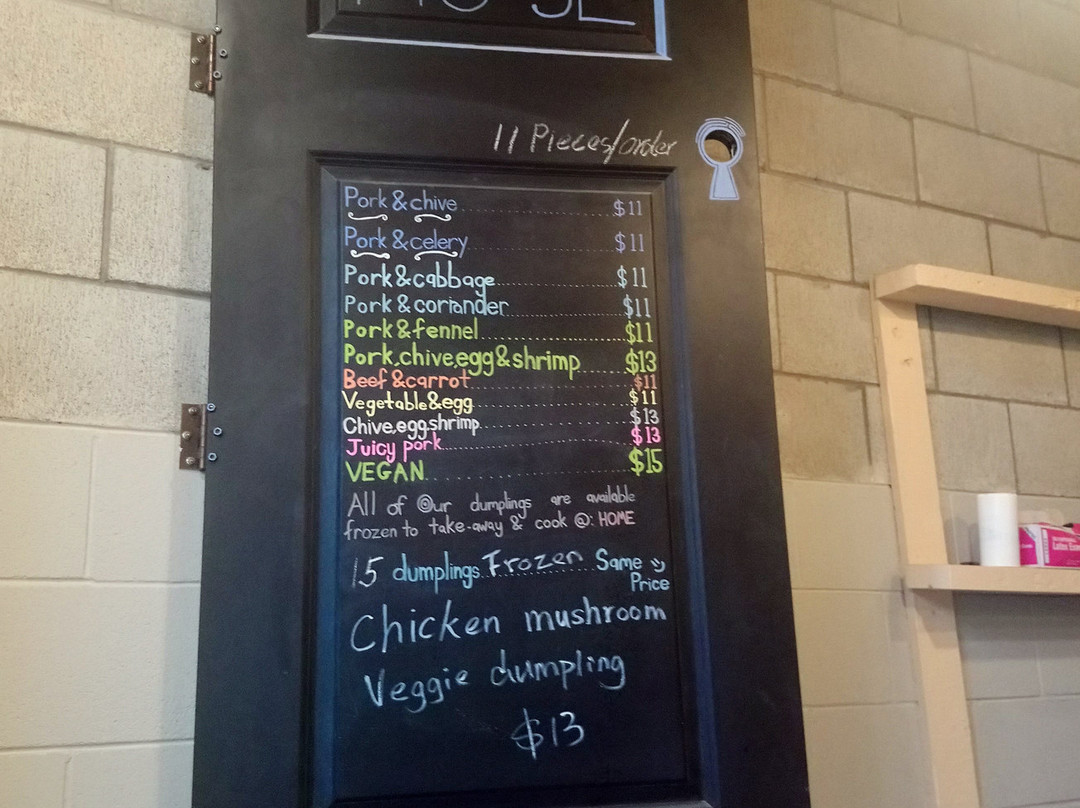 11 Pieces/order
Pork & chive $11
Pork & celery $11
Pork & cabbage $11
Pork & coriander $11
Pork & fennel $11
Pork, chive, egg & shrimp $13
Beef & carrot $11
Vegetable & egg $11
Chive, egg, shrimp $13
Juicy pork $13
VEGAN $15
All of Our dumplings are available
frozen to take-away & cook @: HOME
15 dumplings Frozen Same
Price
Chicken mushroom
Veggie dumpling
$13